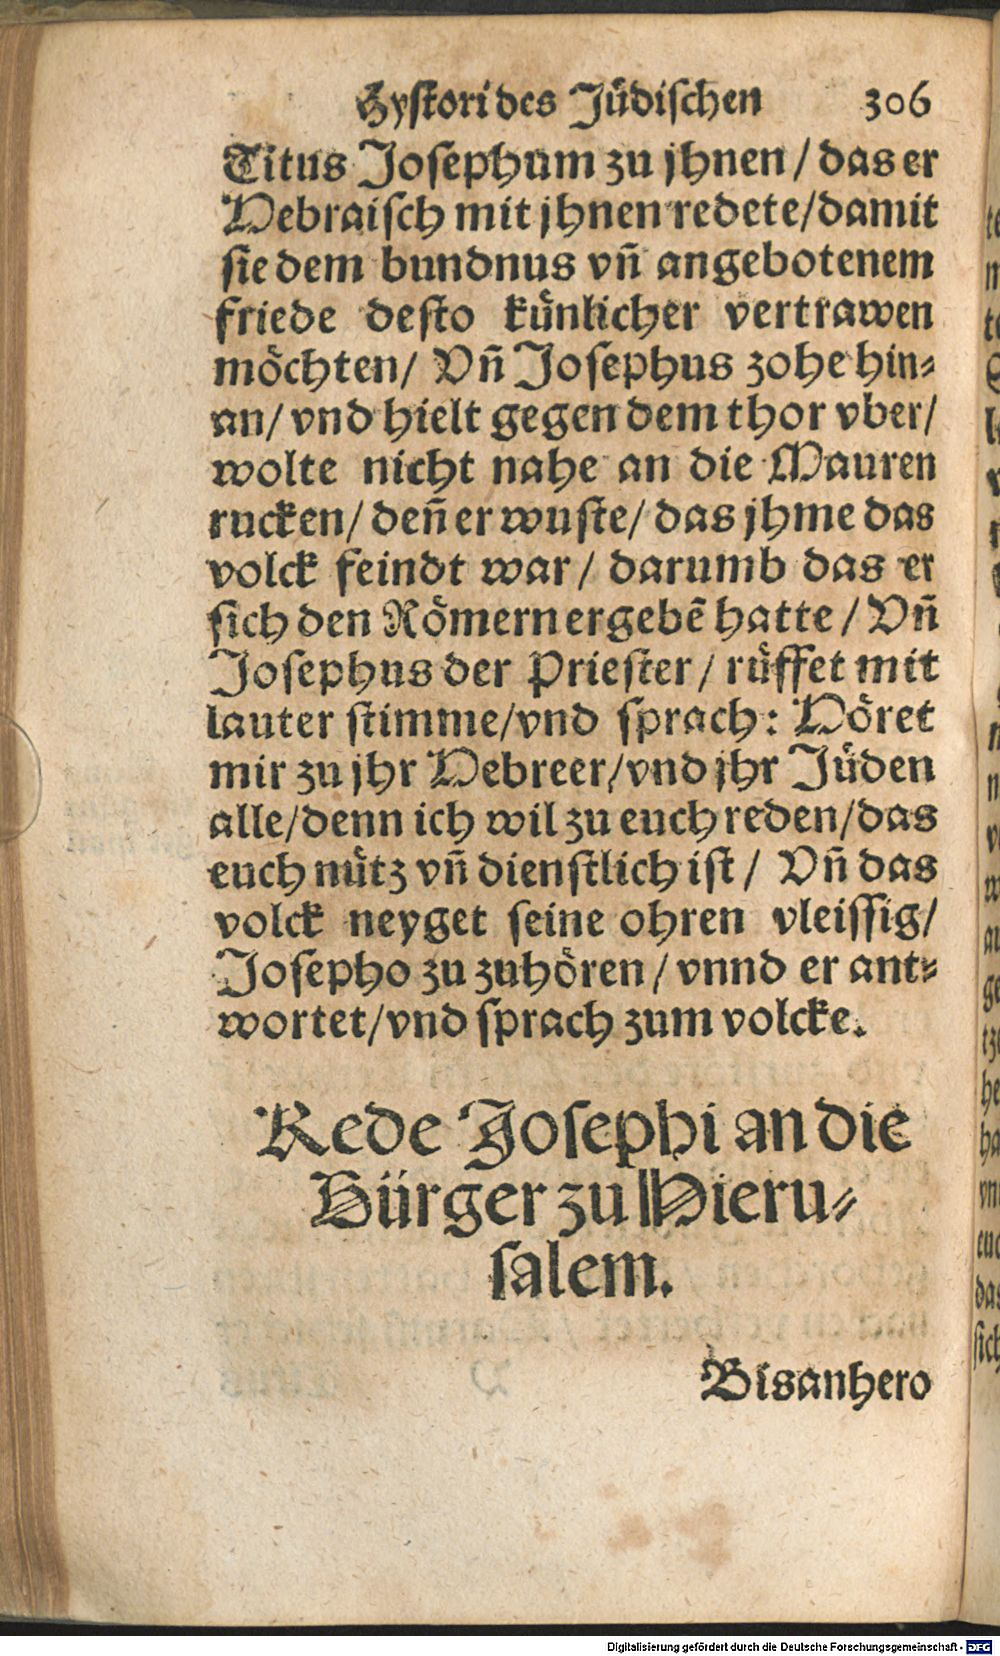 Hystori des Jüdischen 306
Titus Josephum zu jhnen / das er
Hebraisch mit jhnen redete / damit
sie dem bundnus vñ angebotenem
friede desto künlicher vertrawen
möchten / Vñ Josephus zohe hin⸗
an / vnd hielt gegen dem thor vber /
wolte nicht nahe an die Mauren
rucken / deñ er wuste / das jhme das
volck feindt war / darumb das er
sich den Römern ergebẽ hatte / Vñ
Josephus der Priester / rüffet mit
lauter stimme / vnd sprach: Höret
mir zu jhr Hebreer / vnd jhr Jüden
alle / denn ich wil zu euch reden / das
euch nütz vñ dienstlich ist / Vñ das
volck neyget seine ohren vleissig /
Josepho zu zuhören / vnnd er ant⸗
wortet / vnd sprach zum volcke.
Rede Josephi an die
Bürger zu Hieru⸗
salem.
Bisanhero
Digitalisierung gefördert durch die Deutsche Forschungsgemeinschaft - DFG